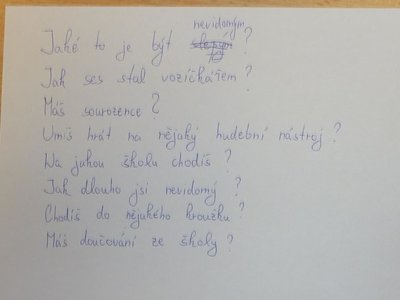 nevidomým
Jaké to je být ?
Jak ses stal vozíčkářem ?
Máš sourozence ?
Umíš hrát na nějaký hudební nástroj ?
Na jakou školu chodíš ?
Jak dlouho jsi nevidomý ?
Chodíš do nějakého kroužku ?
Máš doučování ze školy ?